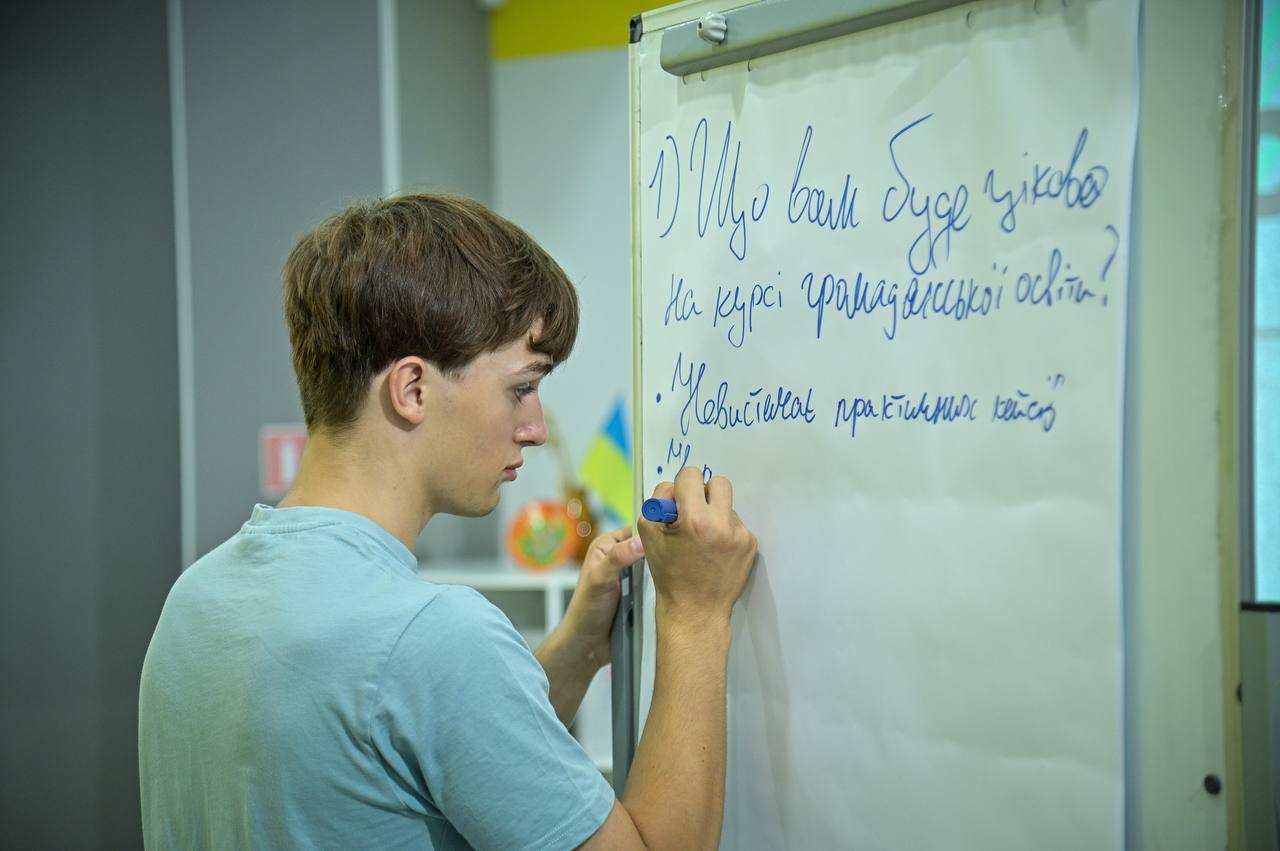 1) Що вам буде цікаво
на курсі громадянської освіти?
• Невистічає практичних кейсів
•